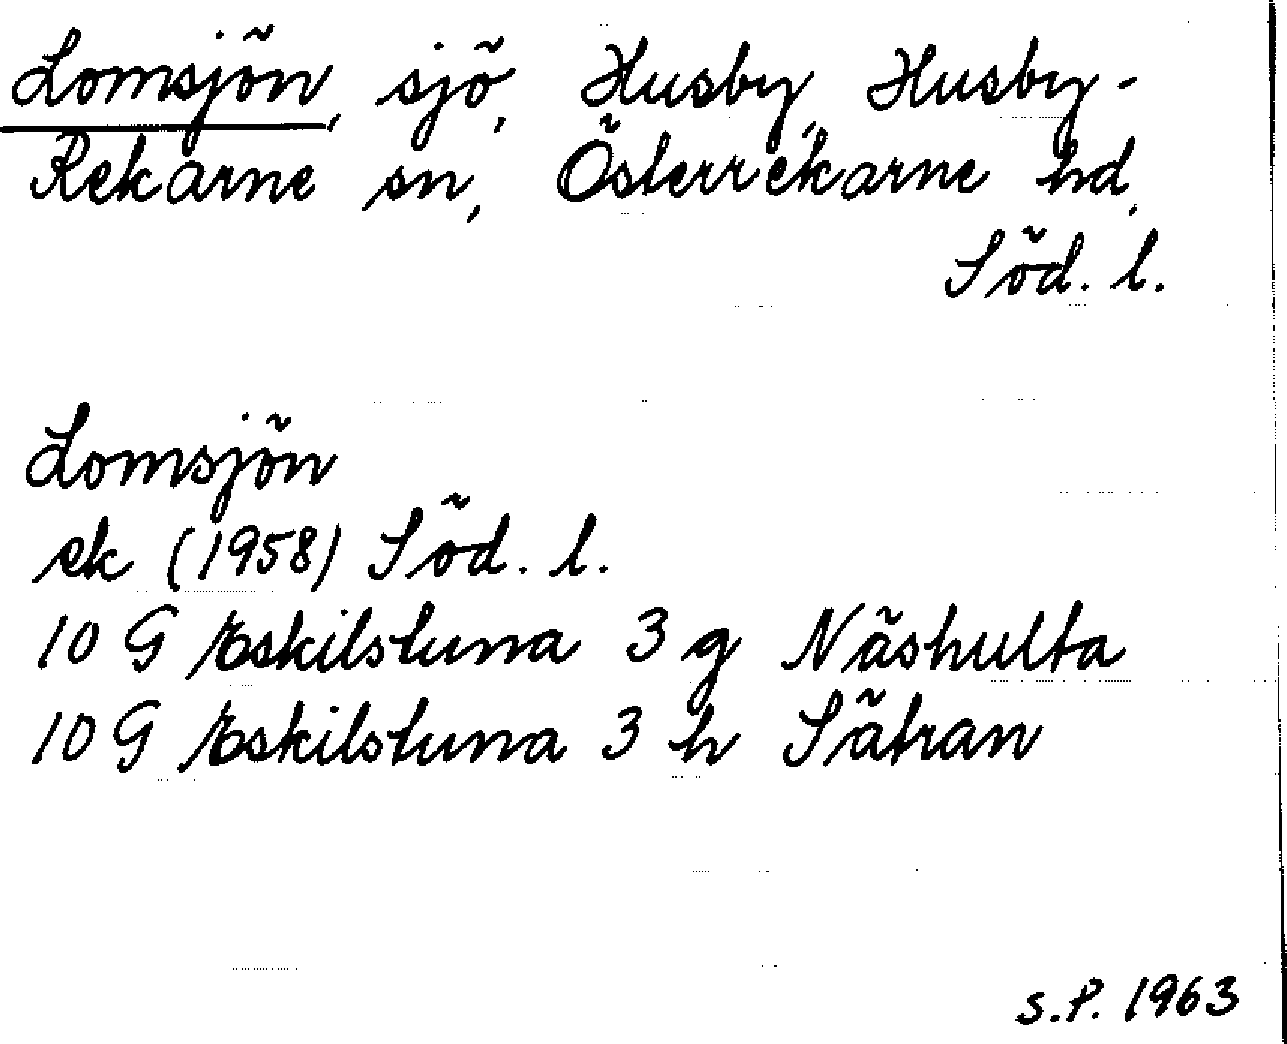 Lomsjön, sjö, Husby, Husby-
Rekarne sn, Österrekarne hd,
Söd. l.
Lomsjön
ek (1958) Söd. l.
10 G Eskilstuna 3 g Näshulta
10 G Eskilstuna 3 h Sätran
S.P. 1963